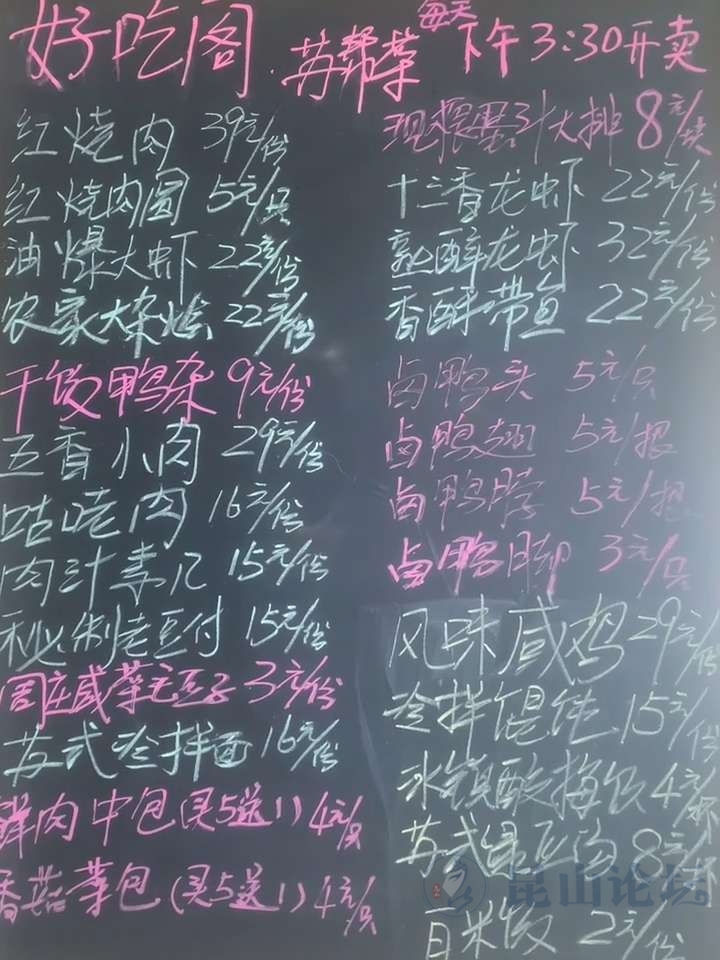 好吃阁 苏帮菜 每天下午3:30开卖
红烧肉 39元/份
红烧肉圆 5元/只
油爆大虾 22元/份
农家大杂烩 22元/份
干饭鸭杂 9元/份
五香小肉 29元/份
咕咾肉 16元/份
肉汁素几 15元/份
秘制老豆付 15元/份
周庄咸菜毛豆子 3元/份
苏式冷拌面 16元/份
鲜肉中包(买5送1) 4元/只
香菇菜包(买5送1) 4元/只
大排 8元/块
十三香龙虾 22元/份
熟醉龙虾 32元/份
香酥带鱼 22元/份
卤鸭头 5元/只
卤鸭翅 5元/根
卤鸭脖 5元/根
卤鸭脚 3元/只
风味咸鸡 29元/份
冷拌馄饨 15元/份
冰镇酸梅饮 4元/杯
苏式绿豆汤 8元/
白米饭 2元/份
昆山论坛